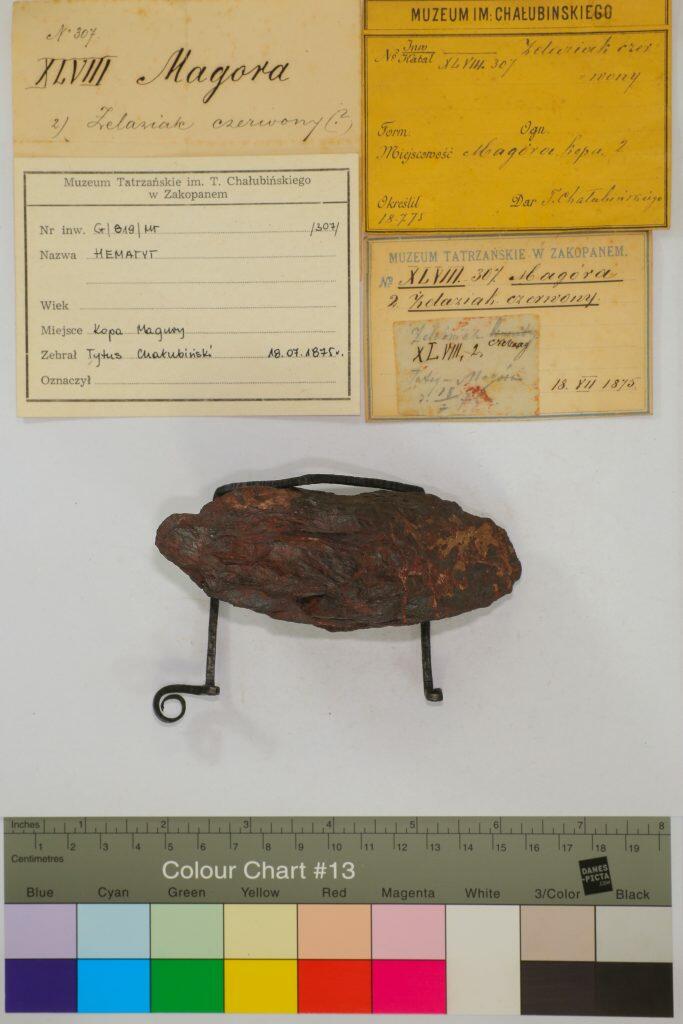 N 307.
XLVIII Magora
2) Żelaziak czerwony (?)
MUZEUM IM: CHAŁUBINSKIEGO
№ Inw Katal XLVIII. 307 Żelaziak czer
wony
Form. Ogn.
Miejscowość Magóra kopa 2
Określił Dar T. Chałubińskiego
18.7.75
Muzeum Tatrzańskie im. T. Chałubińskiego
w Zakopanem
Nr inw. G/819/MT /307/
Nazwa HEMATYT
Wiek
Miejsce Kopa Magury
Zebrał Tytus Chałubiński 18.07.1875r.
Oznaczył
MUZEUM TATRZAŃSKIE W ZAKOPANEM.
№ XLVIII. 307 Magóra
2. Żelaziak czerwony.
XLVIII, 2. czerwony
Magóra
18. VII 1875.
Inches 1 2 3 4 5 6 7 8
1 2 3 4 5 6 7 8 9 10 11 12 13 14 15 16 17 18 19
Centimetres
Colour Chart #13
DANES
-PICTA
.COM
Blue Cyan Green Yellow Red Magenta White 3/Color Black